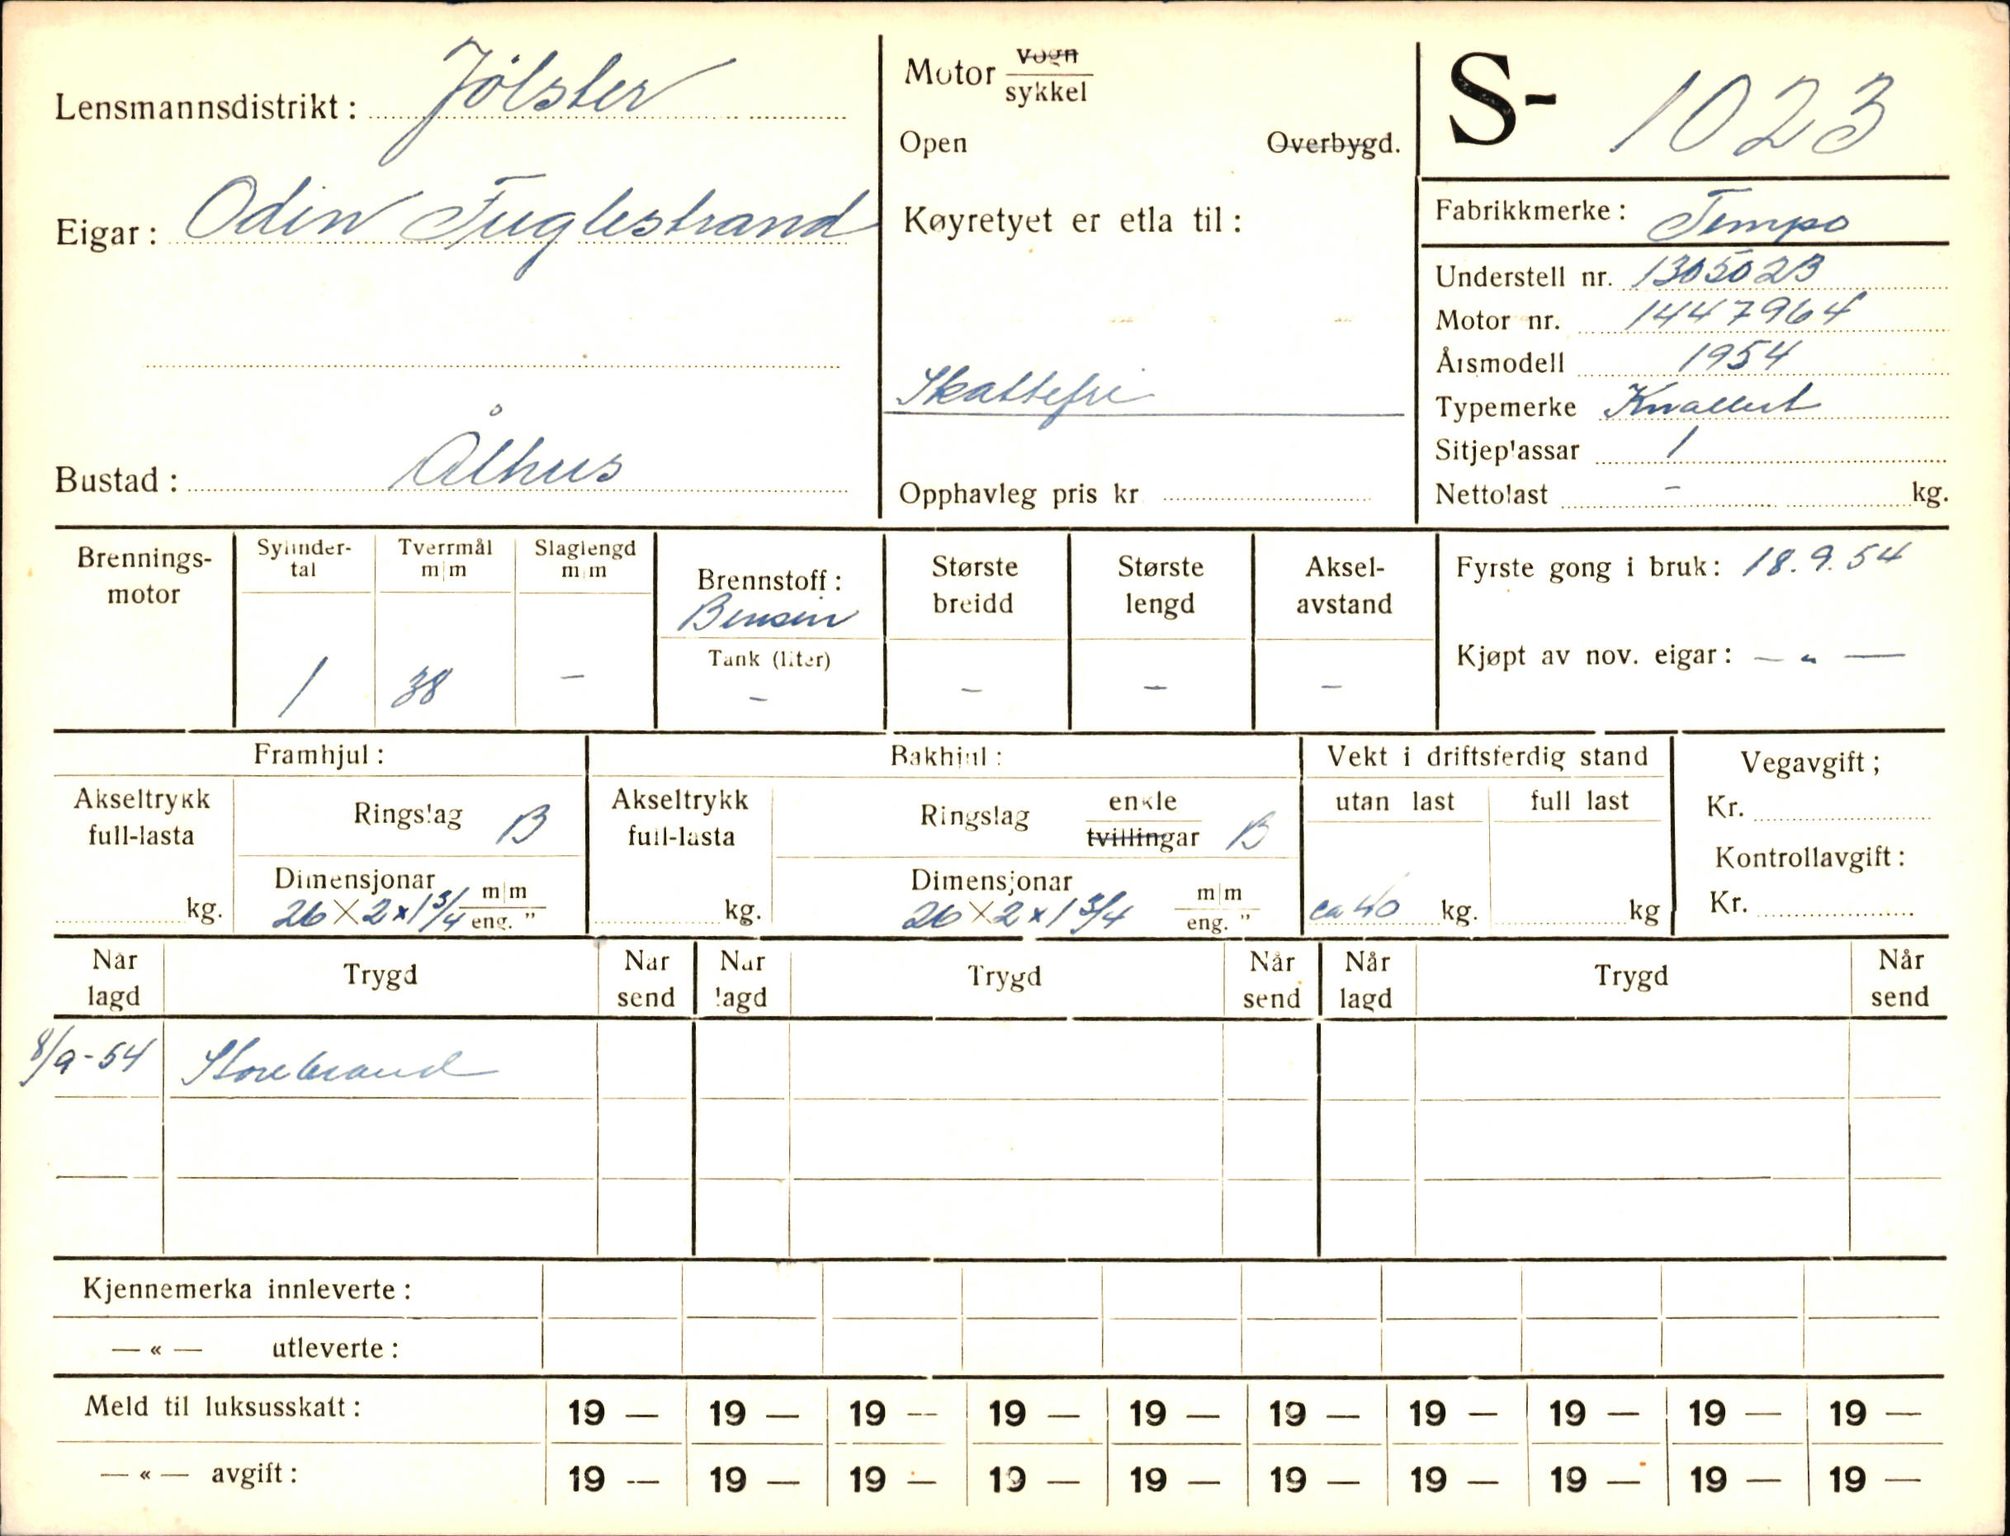 Lensmannsdistrikt: Jölster
Eigar: Odin Fuglestrand
Bustad: Ålhus
Motor vogn
sykkel
Open Overbygd.
Køyretyet er etla til:
Skattefri
Opphavleg pris kr
S- 1023
Fabrikkmerke: Tempo
Understell nr. 1305023
Motor nr. 1447964
Årsmodell 1954
Typemerke Knallert
Sitjeplassar 1
Nettolast - kg.
Brennings-
motor
Sylinder-
tal
1
Tverrmål
m/m
38
Slaglengd
m/m
-
Brennstoff:
Bensin
Tank (liter)
-
Største
breidd
-
Største
lengd
-
Aksel-
avstand
-
Fyrste gong i bruk: 18.9.54
Kjøpt av nov. eigar: — „ —
Framhjul:
Akseltrykk
full-lasta
kg.
Ringslag B
Dimensjonar
26 × 2 × 1 3/4 m/m
eng. "
Bakhjul:
Akseltrykk
full-lasta
kg.
Ringslag enkle
tvillingar B
Dimensjonar
26 × 2 × 1 3/4 m/m
eng. "
Vekt i driftsferdig stand
utan last full last
ca 40 kg. kg
Vegavgift;
Kr.
Kontrollavgift:
Kr.
Når
lagd Trygd Når
send Når
lagd Trygd Når
send Når
lagd Trygd Når
send
8/9-54 Storebrand
Kjennemerka innleverte:
— « — utleverte:
Meld til luksusskatt: 19 — 19 — 19 — 19 — 19 — 19 — 19 — 19 — 19 — 19 —
— « — avgift: 19 — 19 — 19 — 19 — 19 — 19 — 19 — 19 — 19 — 19 —